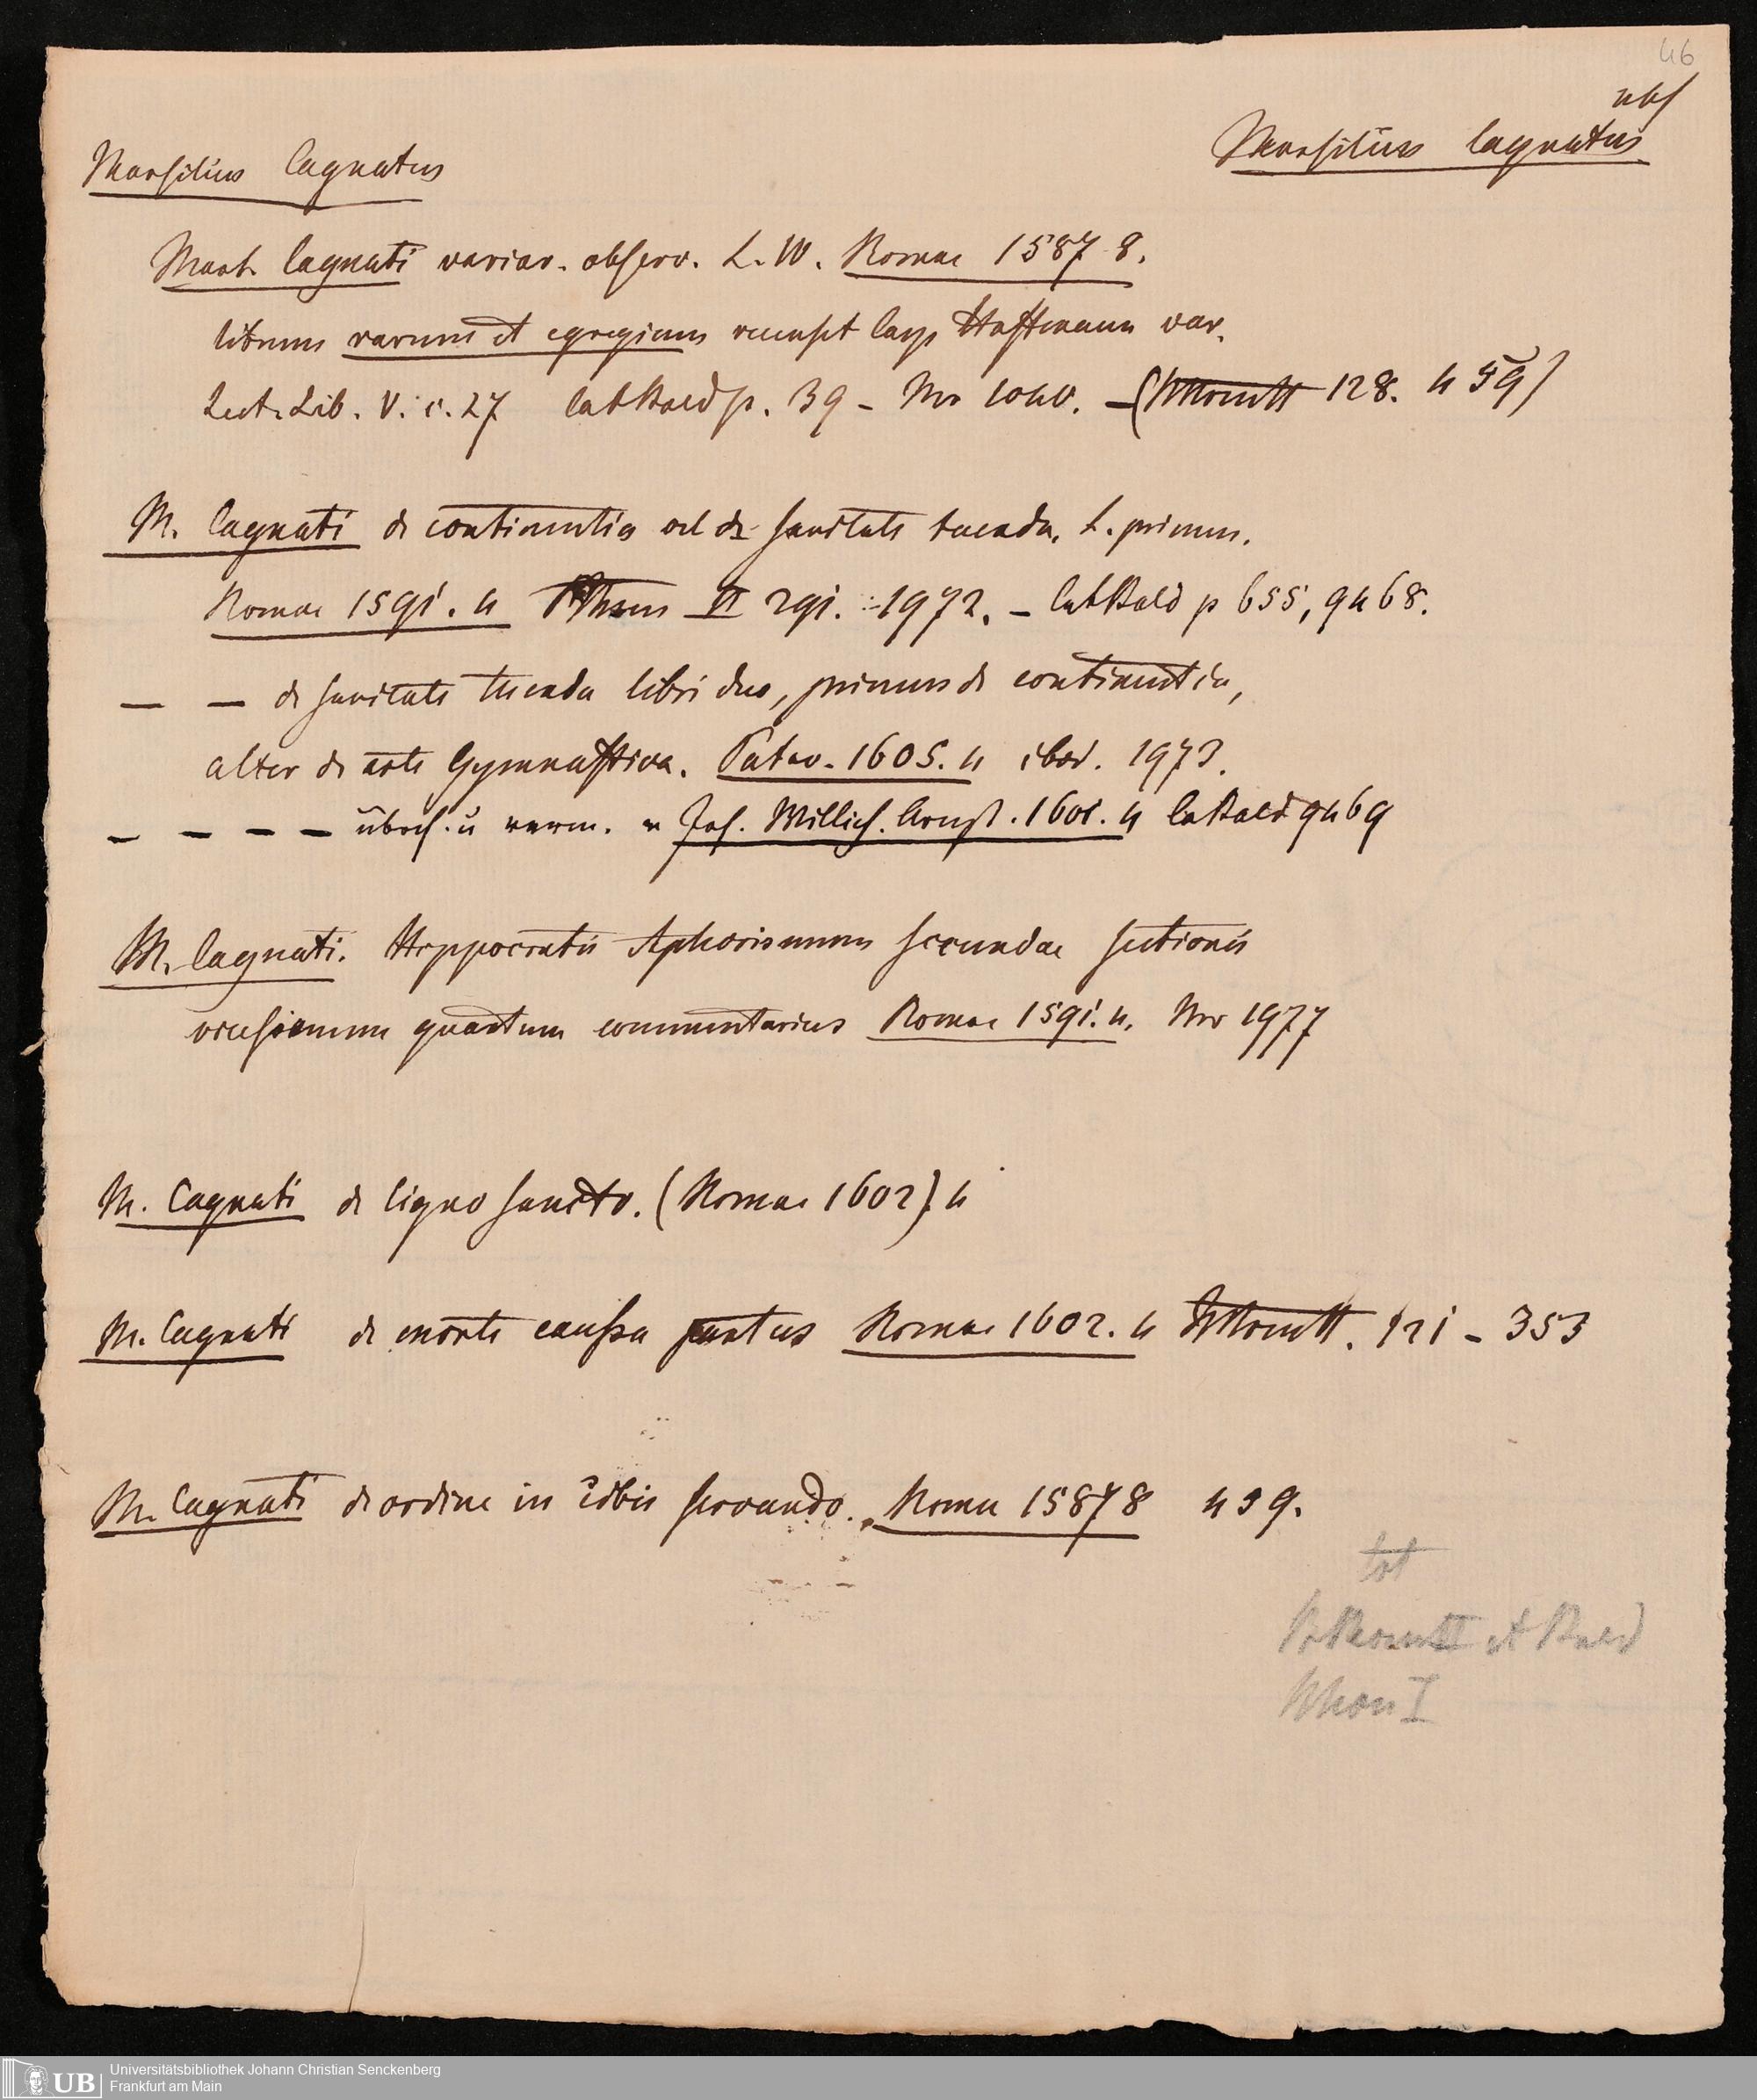 46
Marsilius Cagnatus
Marsilius Cagnatus
Mars. Cagnati variar. observ. L. IV. Romae 1587 8.
librum rarum et egregium recenset Casp Hoffmann var.
Lect. Lib. V. c. 27 CatBald p. 39 - Nr 1040. - ( 128. 4 59)
M. Cagnati de continentia vel de sanitate tuenda. L. primus.
Romae 1591. 4 VI 291. 1972. - CatBald p 655, 9468.
— — de sanitate tuenda libri duo, primus de continentia,
alter de arte Gymnastica. Patav. 1605. 4 ibid. 1973.
— — — — übers. u verm. v Jos. Millich. 1601. 4 CaBald 9469
M. Cagnati. Hippocratis Aphorismum secundae sectionis
vicesimum quartum commentarius Romae 1591. 4. Nr 1977
M. Cagnati de ligno sancto. (Romae 1602) 4
M. Cagnati de morte caussa partus Romae 1602. 4 121 - 353
M. Cagnati de ordine in cibis servando. Roma 1587 8 439.
tot
et Bald
I
Universitätsbibliothek Johann Christian Senckenberg
UB Frankfurt am Main